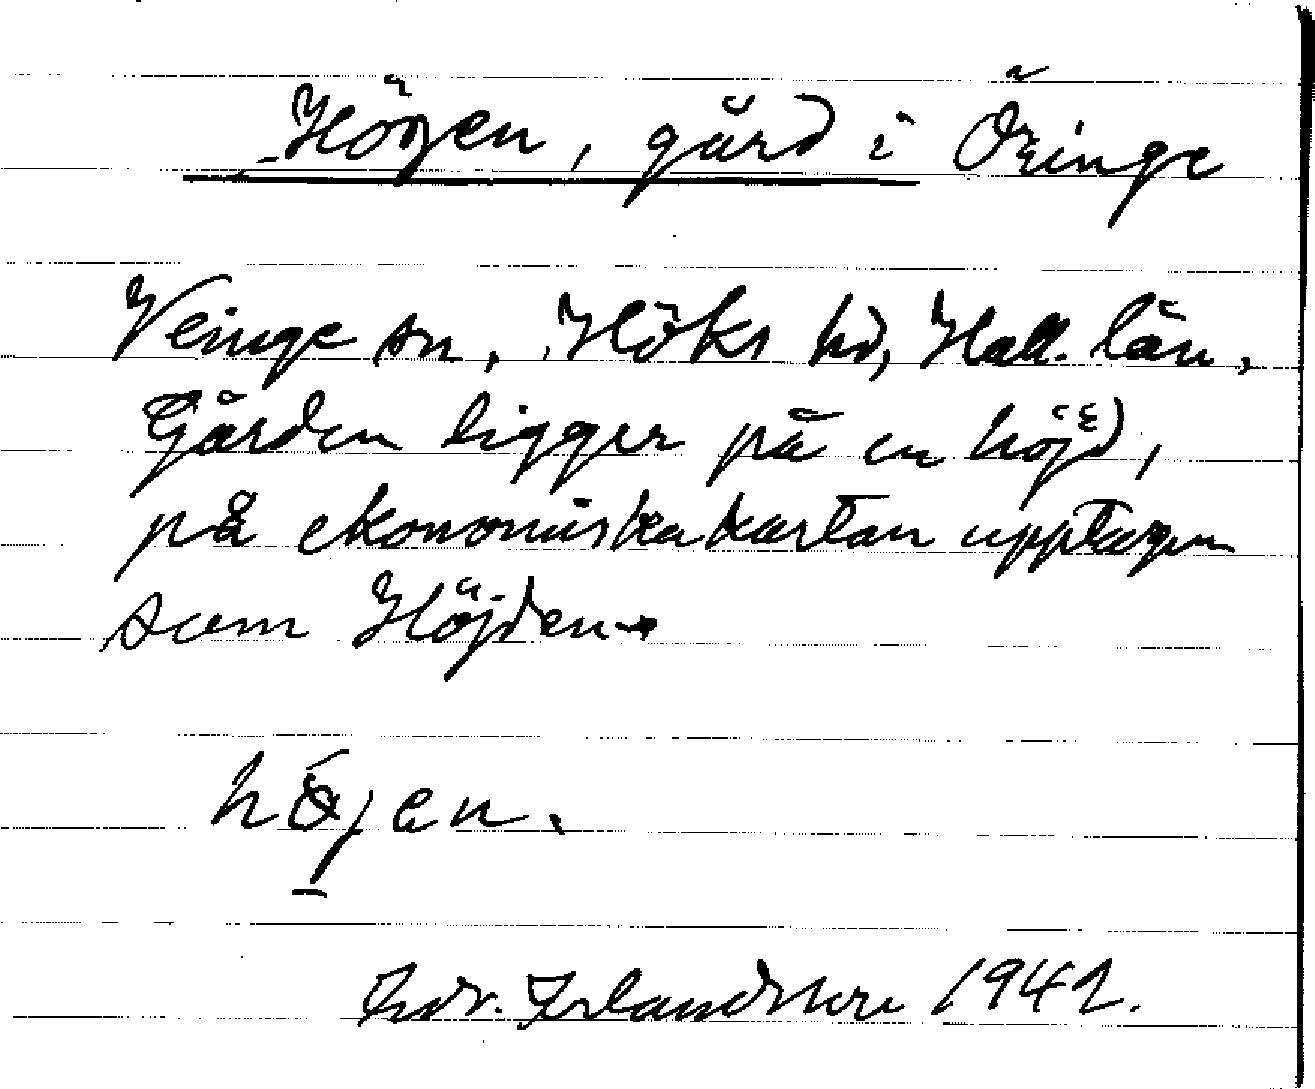 Högen, gård i Öringe
Veinge sn, Höks hd, Hall. län,
Gården ligger på en höjd,
på ekonomiska kartan upptagen
som Höjden.
Edv. Erlandsson 1942.